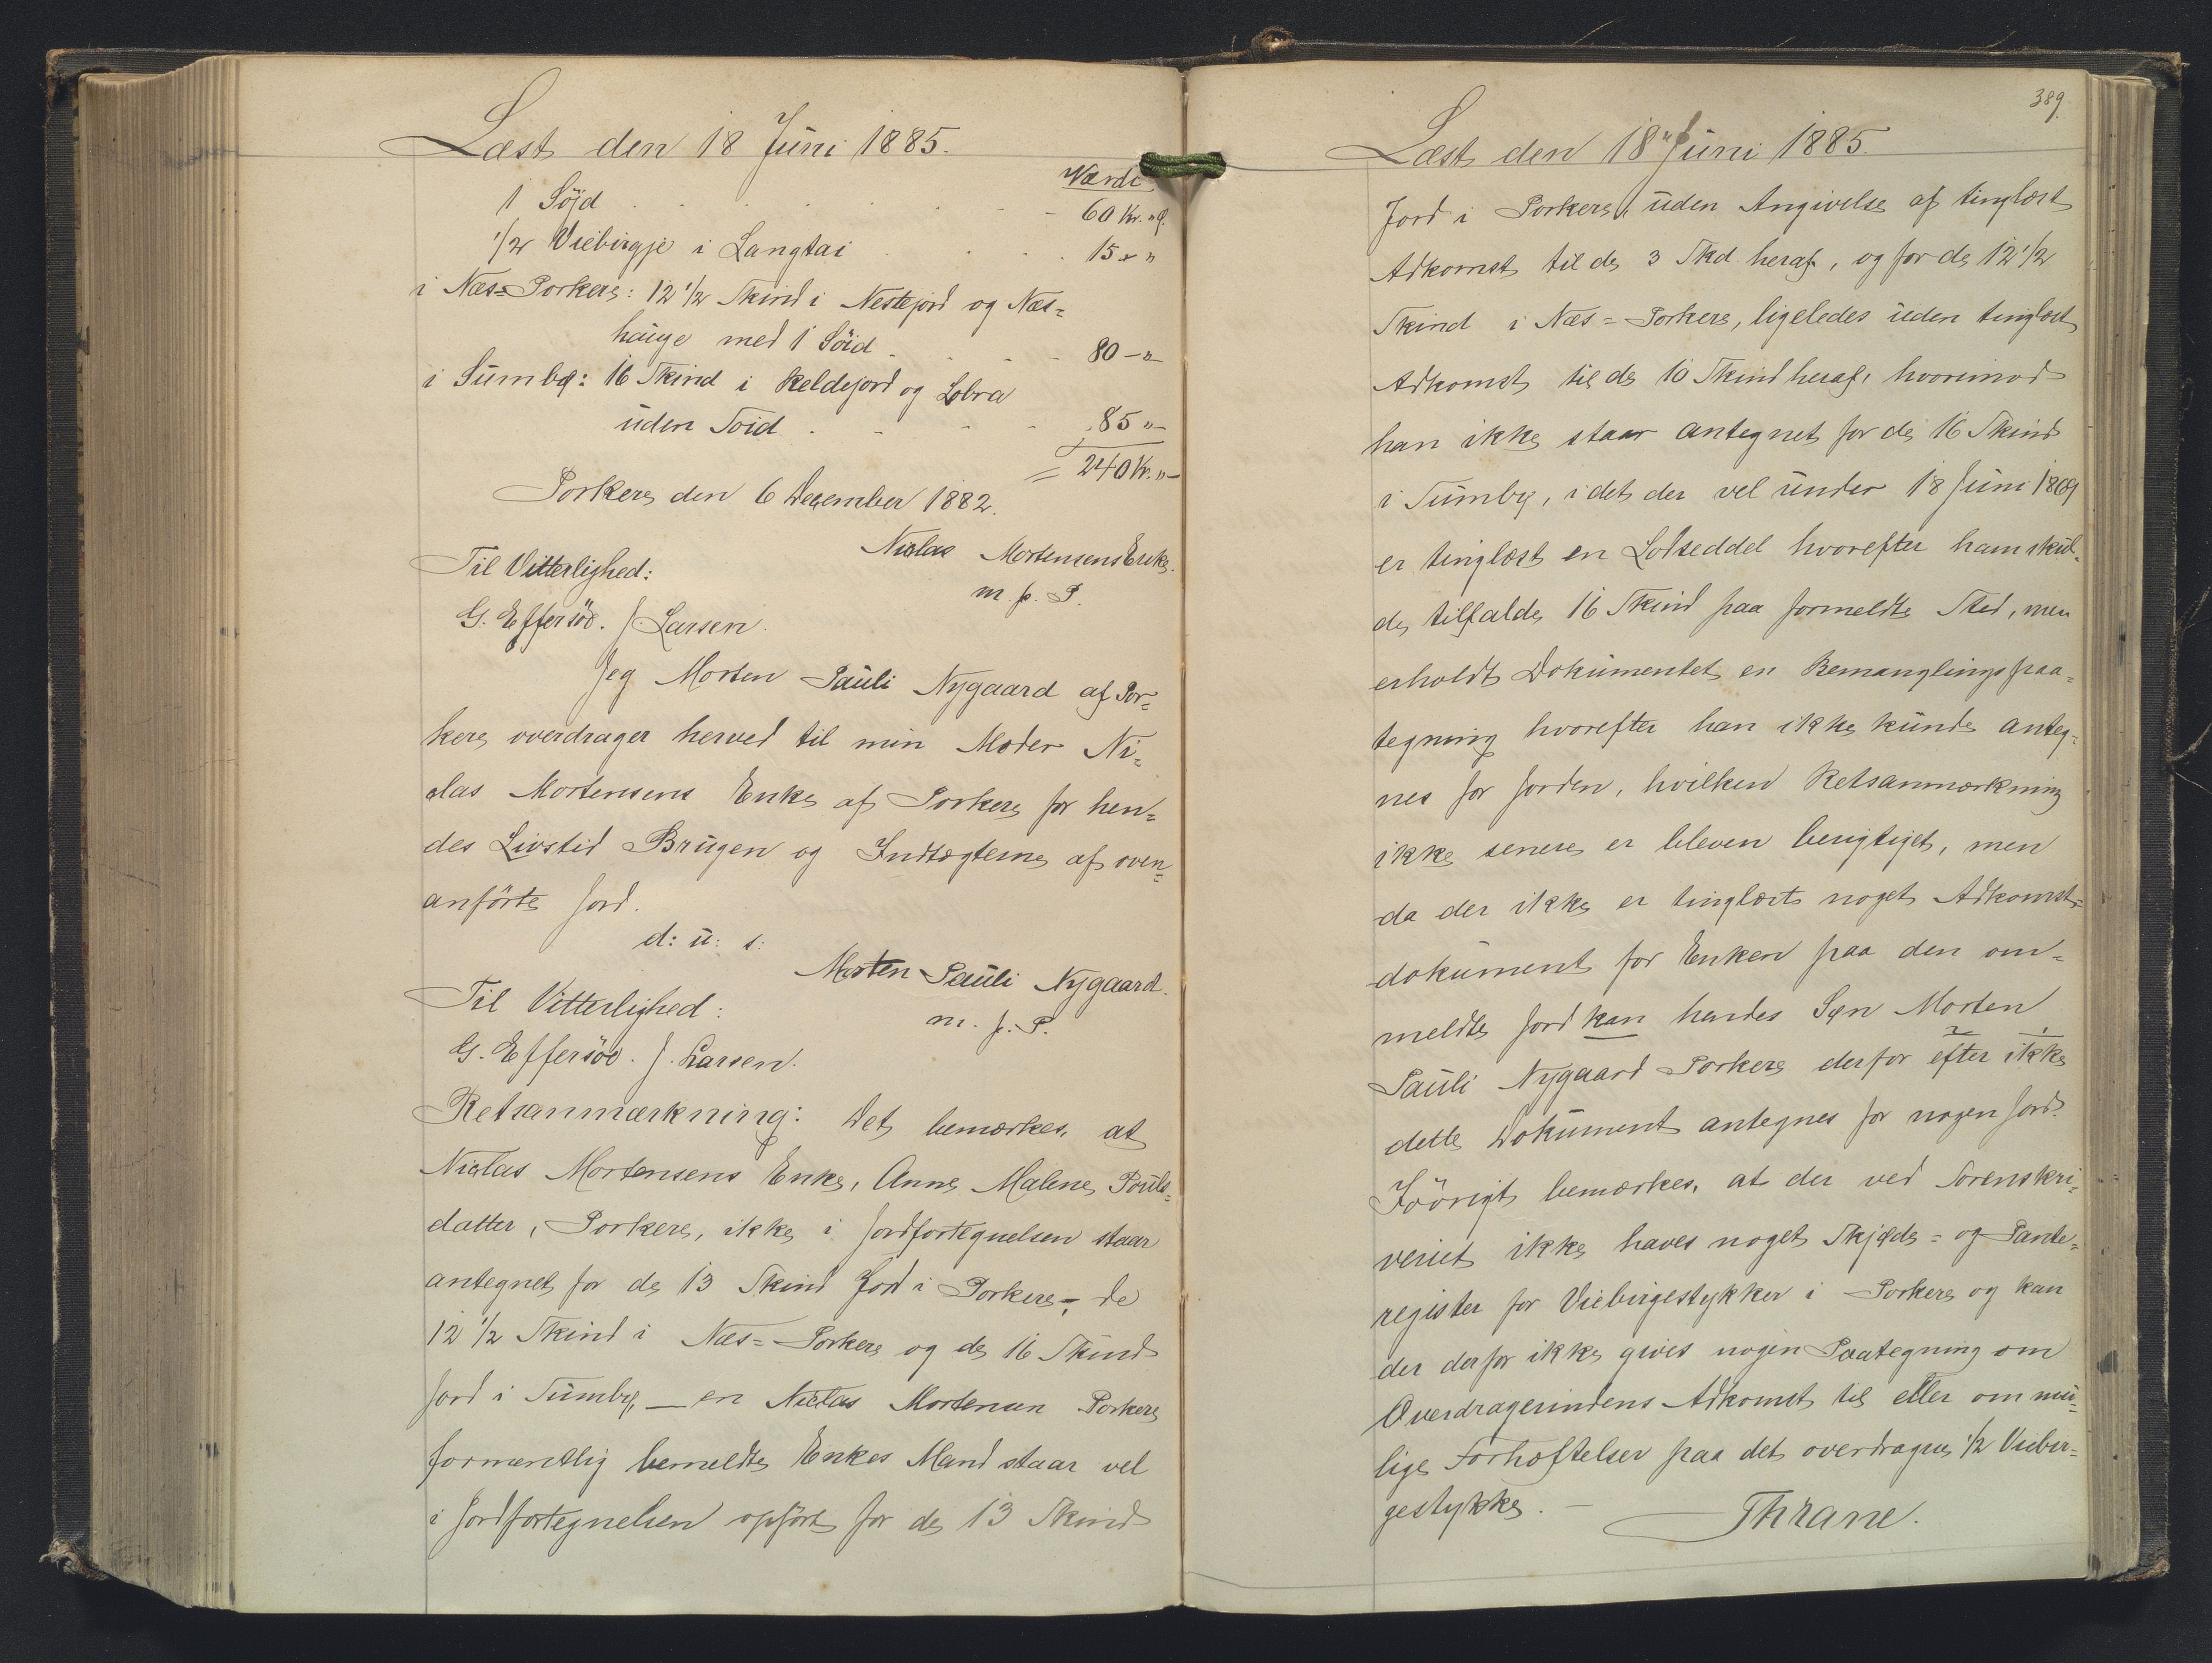 Læst den 18 Juni 1885.
Værdi
1 Söjd . . . . . . - 60 Kr. " Ø.
1/2 Viebirgje i Langtai . . . . 15 - "
i Næs=Porkere: 12 1/2 Skind i Nestejord og Næs=
hauge med 1 Söid . - - - 80 - " -
i Sumbø: 16 Skind i Keldejord og Lobra
uden Soid . - - - - 85 " -
= 240 Kr. " -
Porkere den 6 December 1882.
Niclas Mortensens Enke.
m. f. P.
Til Vitterlighed:
G. Effersöe. J Larsen.
Jeg Morten Pauli Nygaard af Por=
kere overdrager herved til min Moder Ni=
clas Mortensens Enke af Porkere for hen=
des Livstid Brugen og Indtægterne af oven=
anförte Jord.
d: u: s:
Morten Pauli Nygaard.
m. f. P.
Til Vitterlighed:
G. Effersöe. J. Larsen.
Retsanmærkning: Det bemærkes, at
Niclas Mortensens Enke, Anne Malene Pouls=
datter, Porkere, ikke i Jordfortegnelsen staar
antegnet for de 13 Skind Jord i Porkere, de
12 1/2 Skind i Næs=Porkere og de 16 Skind
Jord i Sumbø, — en Niclas Mortensen Porkere
formentlig bemeldte Enkes Mand staar vel
i Jordfortegnelsen opfört for de 13 Skind
389.
Læst den 18" Juni 1885.
Jord i Porkere, uden Angivelse af tinglæst
Adkomst til de 3 Skd. heraf, og for de 12 1/2
Skind i Næs=Porkere, ligeledes uden tinglæst
Adkomst til de 10 Skind heraf, hvorimod
han ikke staar antegnet for de 16 Skind
i Sumbø, idet der vel under 18 Juni 1869
er tinglæst en Lodseddel hvorefter ham skul=
de tilfalde 16 Skind paa formeldte Sted, men
erholdt Dokumentet en Bemanglingspaa=
tegning hvorefter han ikke kunde anteg=
nes for Jorden, hvilken Retsanmærkning
ikke senere er bleven berigtiget, men
da der ikke er tinglæst noget Adkomst=
dokument for Enken paa den om=
meldte Jord kan hendes Søn Morten
Pauli Nygaard Porkere derfor efter ikke
dette Dokument antegnes for nogen Jord.
Iövrigt bemærkes, at der ved Sorenskri=
veriet ikke haves noget Skjøde= og Pante=
register for Viebirgestykker i Porkere og kan
der derfor ikke gives nogen Paategning om
Overdragerindens Adkomst til eller om mu=
lige Forhæftelser paa det overdragne 1/2 Viebir=
gestykke. —
Thrane.